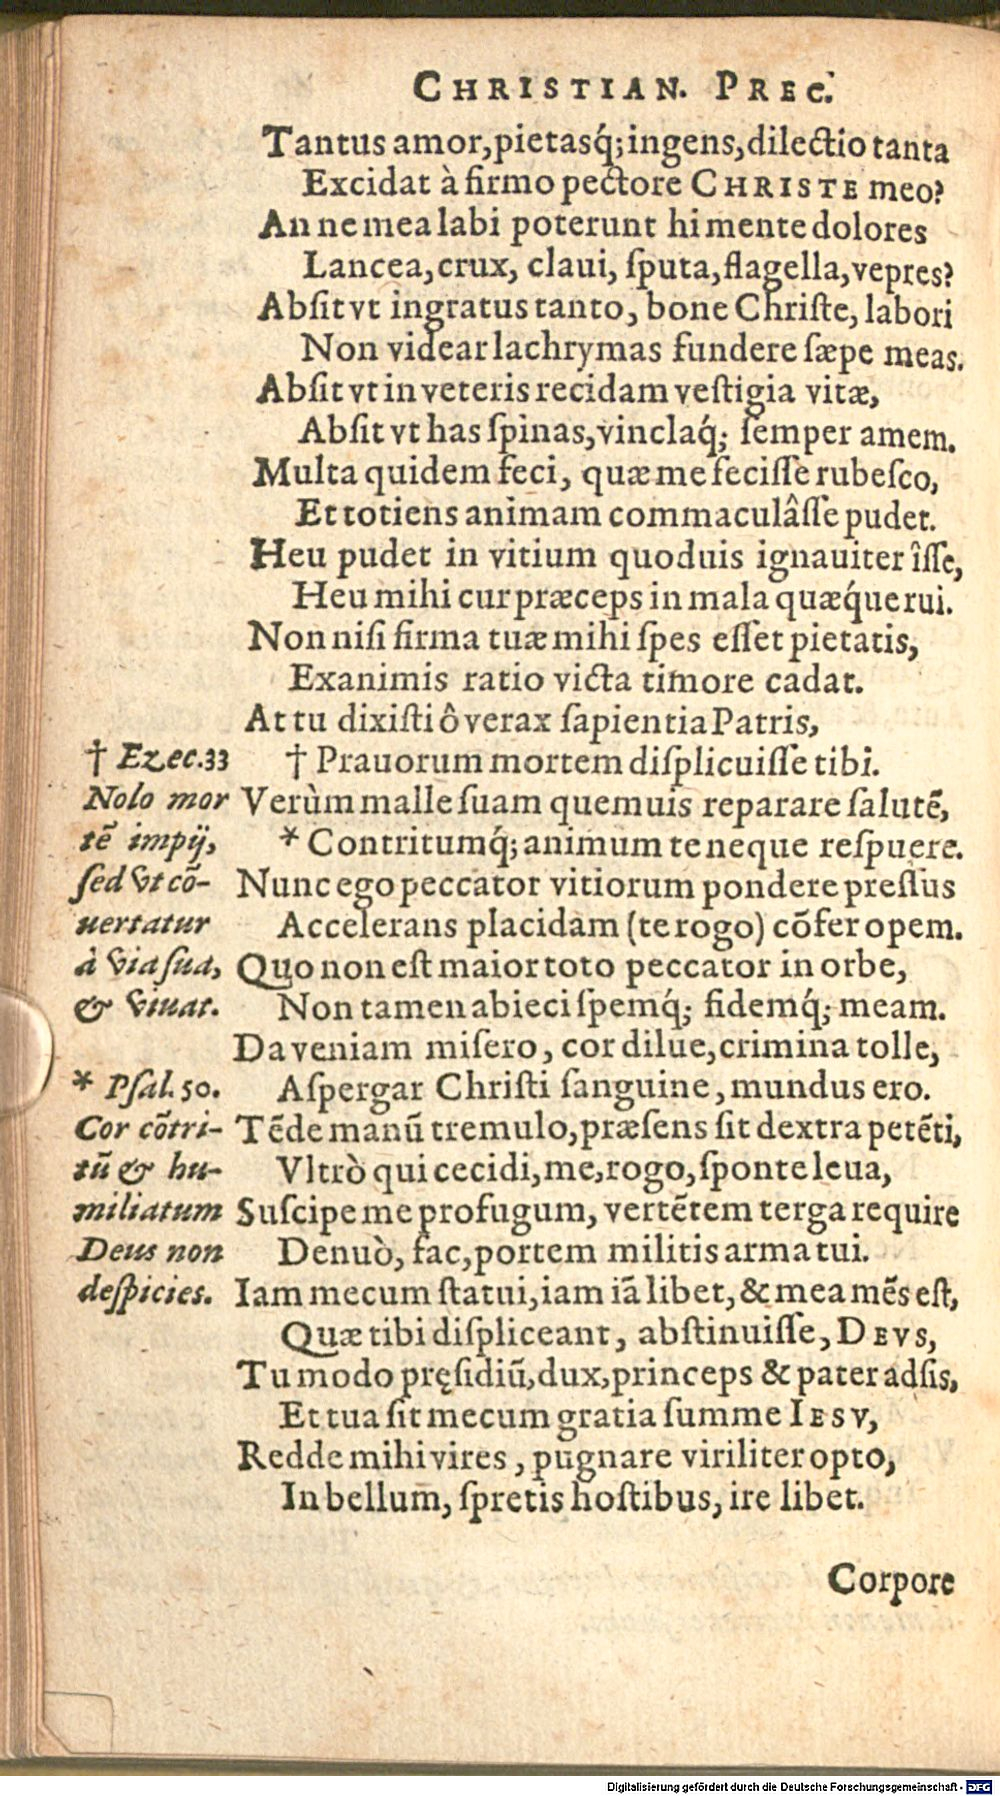 CHRISTIAN. PREC.
Tantus amor, pietasq́; ingens, dilectio tanta
Excidat à firmo pectore CHRISTE meo?
An ne mea labi poterunt hi mente dolores
Lancea, crux, claui, ſputa, flagella, vepres?
Abſit vt ingratus tanto, bone Chriſte, labori
Non videar lachrymas fundere ſæpe meas.
Abſit vt in veteris recidam veſtigia vitæ,
Abſit vt has ſpinas, vinclaq́; ſemper amem.
Multa quidem feci, quæ me feciſſe rubeſco,
Et totiens animam commaculâſſe pudet.
Heu pudet in vitium quoduis ignauiter îſſe,
Heu mihi cur præceps in mala quæq́ue rui.
Non niſi firma tuæ mihi ſpes eſſet pietatis,
Exanimis ratio victa timore cadat.
At tu dixiſti ô verax ſapientia Patris,
† Prauorum mortem diſplicuiſſe tibi.
Verùm malle ſuam quemuis reparare ſalutē,
* Contritumq́; animum te neque reſpuere.
Nunc ego peccator vitiorum pondere preſſus
Accelerans placidam (te rogo) cōfer opem.
Quo non eſt maior toto peccator in orbe,
Non tamen abieci ſpemq́; fidemq́; meam.
Da veniam miſero, cor dilue, crimina tolle,
Aſpergar Chriſti ſanguine, mundus ero.
Tēde manū tremulo, præſens ſit dextra petēti,
Vltrò qui cecidi, me, rogo, ſponte leua,
Suſcipe me profugum, vertētem terga require
Denuò, fac, portem militis arma tui.
Iam mecum ſtatui, iam iā libet, & mea mēs eſt,
Quæ tibi diſpliceant, abſtinuiſſe, DEVS,
Tu modo pręſidiū, dux, princeps & pater adſis,
Et tua ſit mecum gratia ſumme IESV,
Redde mihi vires, pugnare viriliter opto,
In bellum, ſpretis hoſtibus, ire libet.
Corpore
† Ezec. 33
Nolo mor
tē impij,
ſed vt cō-
uertatur
à via ſua,
& viuat.
* Pſal. 50.
Cor cōtri-
tū & hu-
miliatum
Deus non
deſpicies.
Digitalisierung gefördert durch die Deutsche Forschungsgemeinschaft - DFG